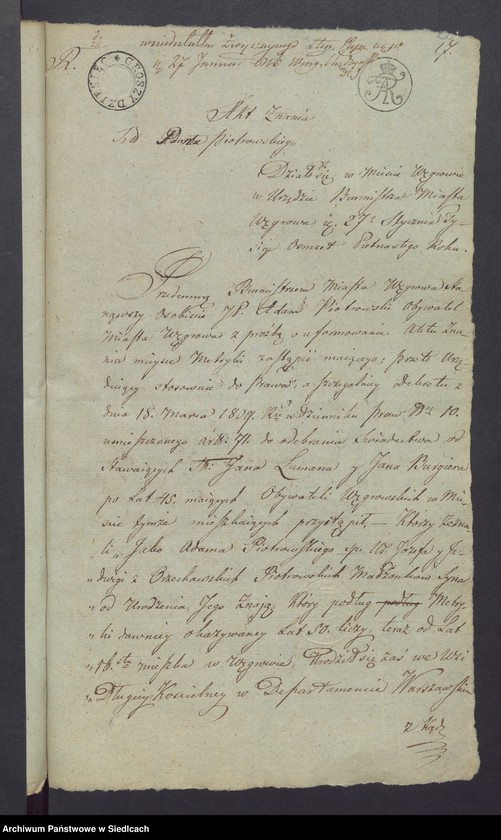 17.
R.
GROSZY DZIESIĘĆ
Akt Znania
Piotrowskiego
Działo się w Mieście Węgrowie
w Urzędzie Burmistrza Miasta
Węgrowa d. 27. Stycznia Ty-
siąc Ośmset Piętnastego Roku.
Przedemną Burmistrzem Miasta Węgrowa Sta-
nąwszy Osobiście JP. Adam Piotrowski Obywatel
Miasta Węgrowa z prośbą o uformowanie Aktu Zna-
nia mieysce Metryki zastąpić maiącego; przeto Urzę-
duiący stosownie do Prawa, a szczególniey Dekretu z
dnia 18. Marca 1809. Ru w dzienniku praw Nro 10.
umieszczonego art: 71. do odebrania Świadectwa od
Stawaiących PP. Jana Lemana y Jana Burgiera
po Lat 45. maiących Obywateli Węgrowskich w Mie-
ście tymże mieszkaiących przystąpił, — Którzy zezna-
li „Jako Adama Piotrowskiego Józefa y Ja-
„dwigi z Orzechowskich Piotrowskich Małżonków Syna
„od Urodzenia Jego Znają, który podług podług Metry-
„ki dawniey okazywaney Lat 50. liczy, teraz od Lat
„16.stu mieszka w Węgrowie, Urodził się zaś we Wsi
„Długiey Kościelney w Departamencie Warszawskim
z tąd
Archiwum Państwowe w Siedlcach